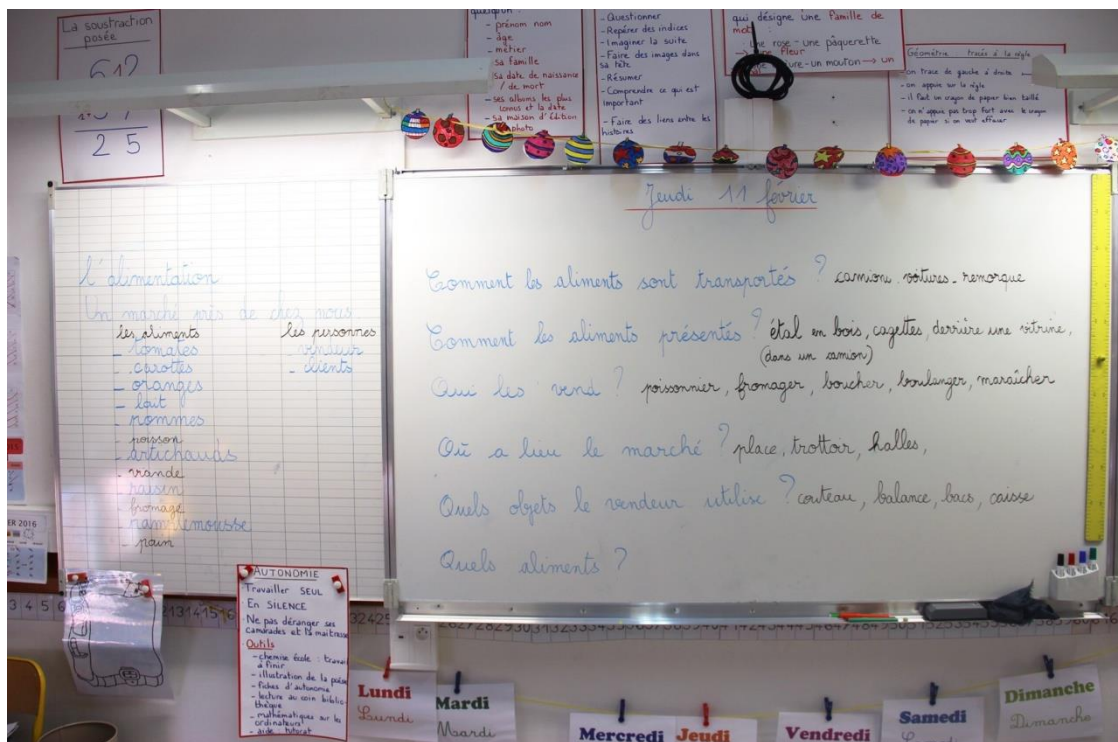 La soustraction
posée
612
2 5
- prénom nom
- âge
- métier
- sa famille
sa date de naissance
/ de mort
- ses albums les plus
connus et la date
- sa maison d'édition
photo
- Questionner
- Repérer des indices
- Imaginer la suite
- Faire des images dans
sa tête
- Résumer
- Comprendre ce qui est
important
- Faire des liens entre les
histoires
qui désigne une famille de
mots
une rose - une pâquerette
fleur
un mouton → un
Géométrie : tracés à la règle
- on trace de gauche à droite
- on appuie sur la règle
- il faut un crayon de papier bien taillé
- on n'appuie pas trop fort avec le crayon
de papier si on veut effacer
l'alimentation
Un marché près de chez nous
les aliments
- tomates
- carottes
- oranges
- lait
- pommes
- poisson
- artichauds
- viande
raisen
fromage
pamplemousse
- pain
les personnes
- vendeur
- clients
Jeudi 11 février
Comment les aliments sont transportés ? camions, voitures - remorque
Comment les aliments présentés ? étal en bois, cagettes, derrière une vitrine,
(dans un camion)
Qui les vend ? poissonnier, fromager, boucher, boulanger, maraîcher
Où a lieu le marché ? place, trottoir, halles,
Quels objets le vendeur utilise ? couteau, balance, bacs, caisse
Quels aliments ?
ER 2016
AUTONOMIE
Travailler SEUL
En SILENCE
Ne pas déranger ses
camarades et la maitresse
Outils
- chemise école : travail
à finir
- illustration de la poésie
- fiches d'autonomie
- lecture au coin biblio-
thèque
- mathématiques sur les
ordinateurs
- aide tutorat
Lundi
Lundi
Mardi
Mardi
Mercredi
Jeudi
Vendredi
Samedi
Dimanche
Dimanche